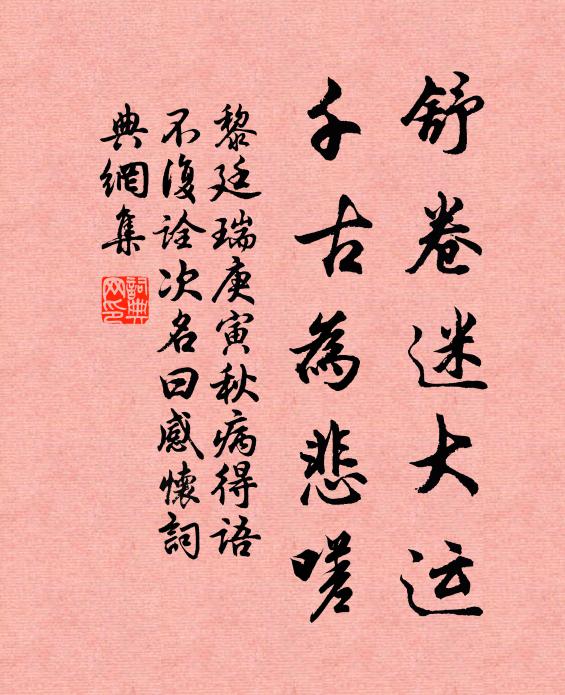 舒卷迷大运
千古為悲嗟
黎廷瑞庚寅秋病得语
不復诠次名曰感懷詞
典網集
詞典网印